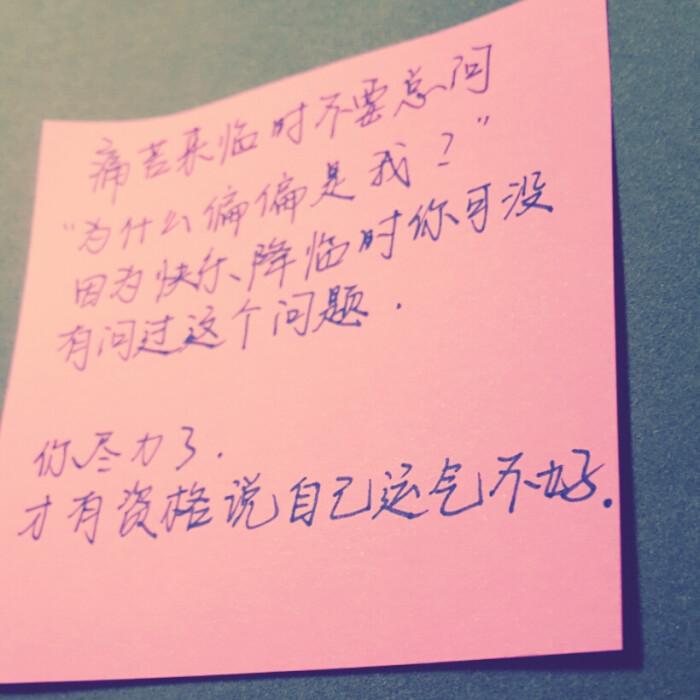 痛苦来临时不要总问
“为什么偏偏是我？”
因为快乐降临时你可没
有问过这个问题.
你尽力了.
才有资格说自己运气不好.